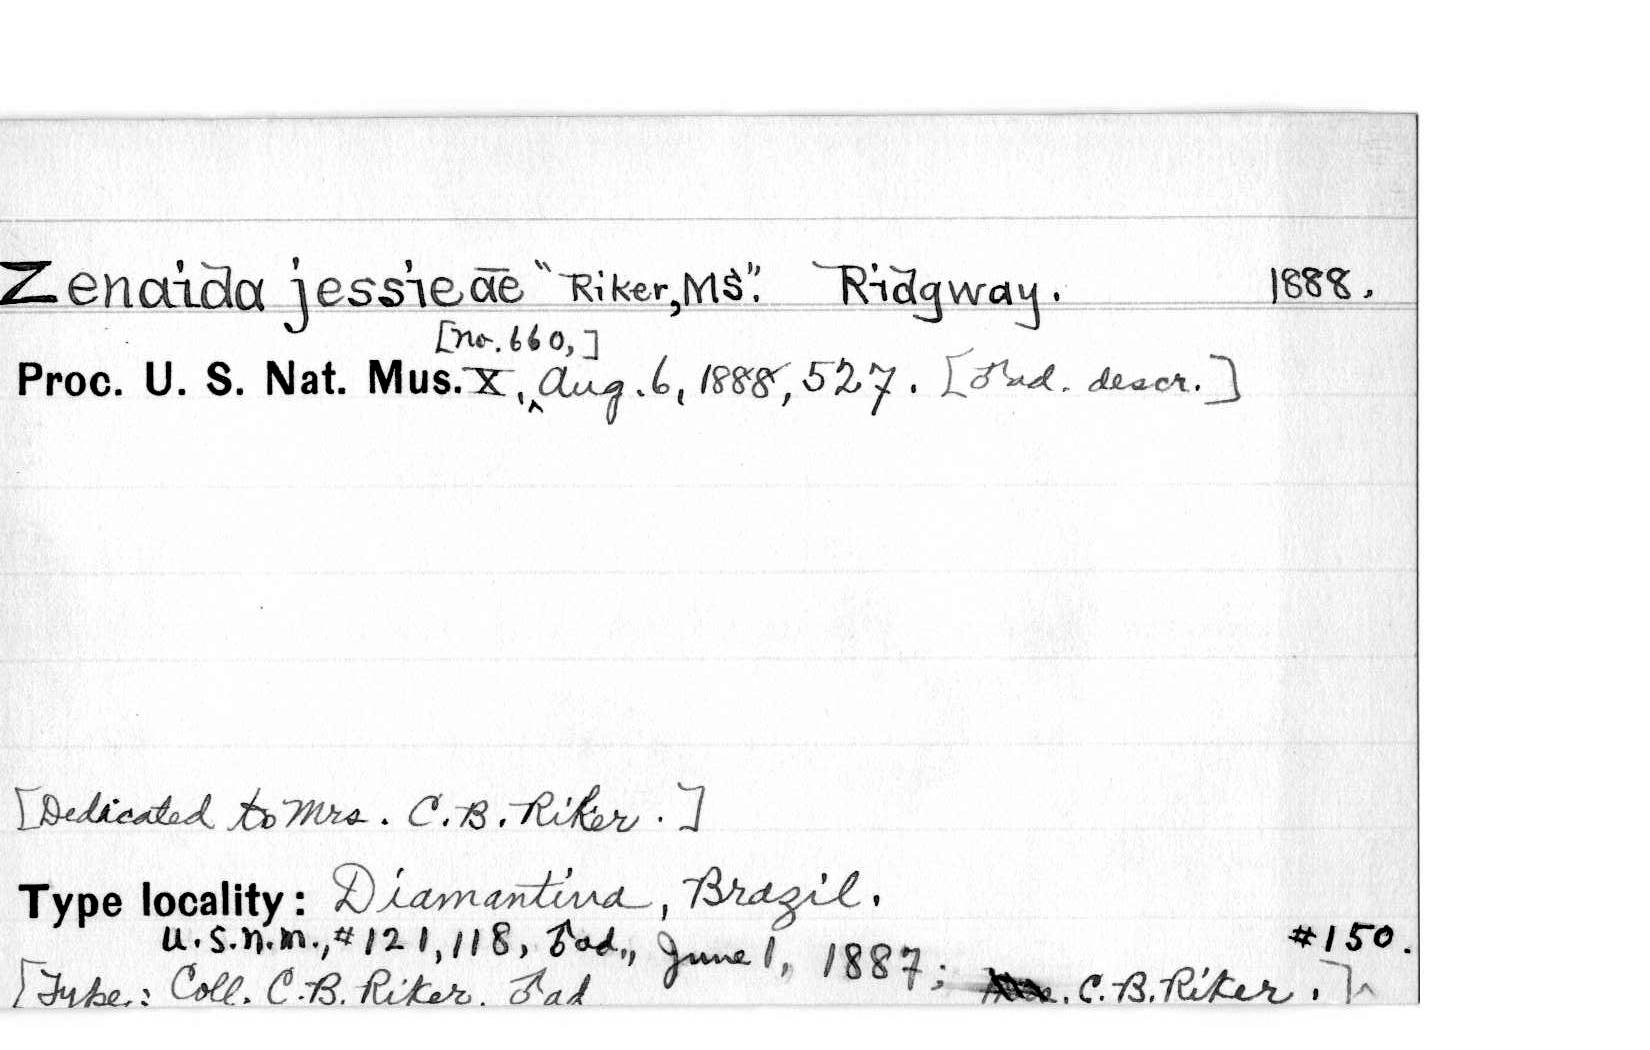 Zenaida jessieae "Riker, MS". Ridgway. 1888.
[no. 660,]
Proc. U. S. Nat. Mus. X, ^ Aug. 6, 1888, 527. [♂ ad. descr.]
[Dedicated to Mrs. C. B. Riker.]
Type locality: Diamantina, Brazil.
U.S.N.M., #121,118, ♂ ad., June 1, 1887; C. B. Riker.] ^ #150.
[Type: Coll. C. B. Riker. ♂ ad